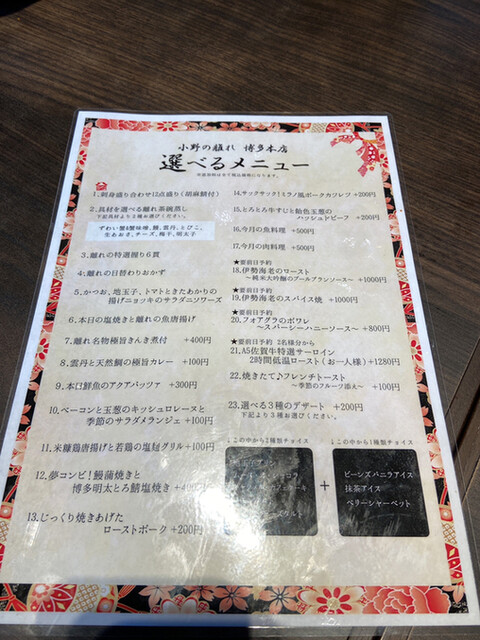 小野の離れ 博多本店
選べるメニュー
1. 刺身盛り合わせ12点盛り(胡麻鯖付)
2. 具材を選べる離れ茶碗蒸し
下記具材より2種お選びください。
ずわい蟹&蟹味噌、鰻、雲丹、とびこ、
生あおさ、チーズ、梅干、明太子
3. 離れの特選握り6貫
4. 離れの日替わりおかず
5. かつお、地玉子、トマトときたあかりの
揚げニョッキのサラダニソワーズ
6. 本日の塩焼きと離れの魚唐揚げ
7. 離れ名物極旨きんき煮付 +400円
8. 雲丹と天然鯛の極旨カレー +100円
9. 本日鮮魚のアクアパッツァ +300円
10. ベーコンと玉葱のキッシュロレーヌと
季節のサラダメランジェ +100円
11. 米糠鶏唐揚げと若鶏の塩麹グリル+100円
12. 夢コンビ!鰻蒲焼きと
博多明太とろ鯖塩焼き +400円
13. じっくり焼きあげた
ローストポーク +200円
14. サックサック!ミラノ風ポークカツレツ +200円
15. とろとろ牛すじと飴色玉葱の
ハッシュドビーフ +200円
16. 今月の魚料理 +500円
17. 今月の肉料理 +500円
★要前日予約
18. 伊勢海老のロースト
〜純米大吟醸のブールブランソース〜 +1000円
★要前日予約
19. 伊勢海老のスパイス焼 +1000円
★要前日予約
20. フォアグラのポワレ
〜スパーシーハニーソース〜 +800円
★要前日予約 2名様分から
21. A5佐賀牛特選サーロイン
2時間低温ロースト(お一人様)+1280円
22. 焼きたて♪フレンチトースト
〜季節のフルーツ添え〜 +100円
23. 選べる3種のデザート +200円
下記より3種お選びください。
↓この中から2種類チョイス
+
↓この中から1種類チョイス
ビーンズバニラアイス
抹茶アイス
ベリーシャーベット